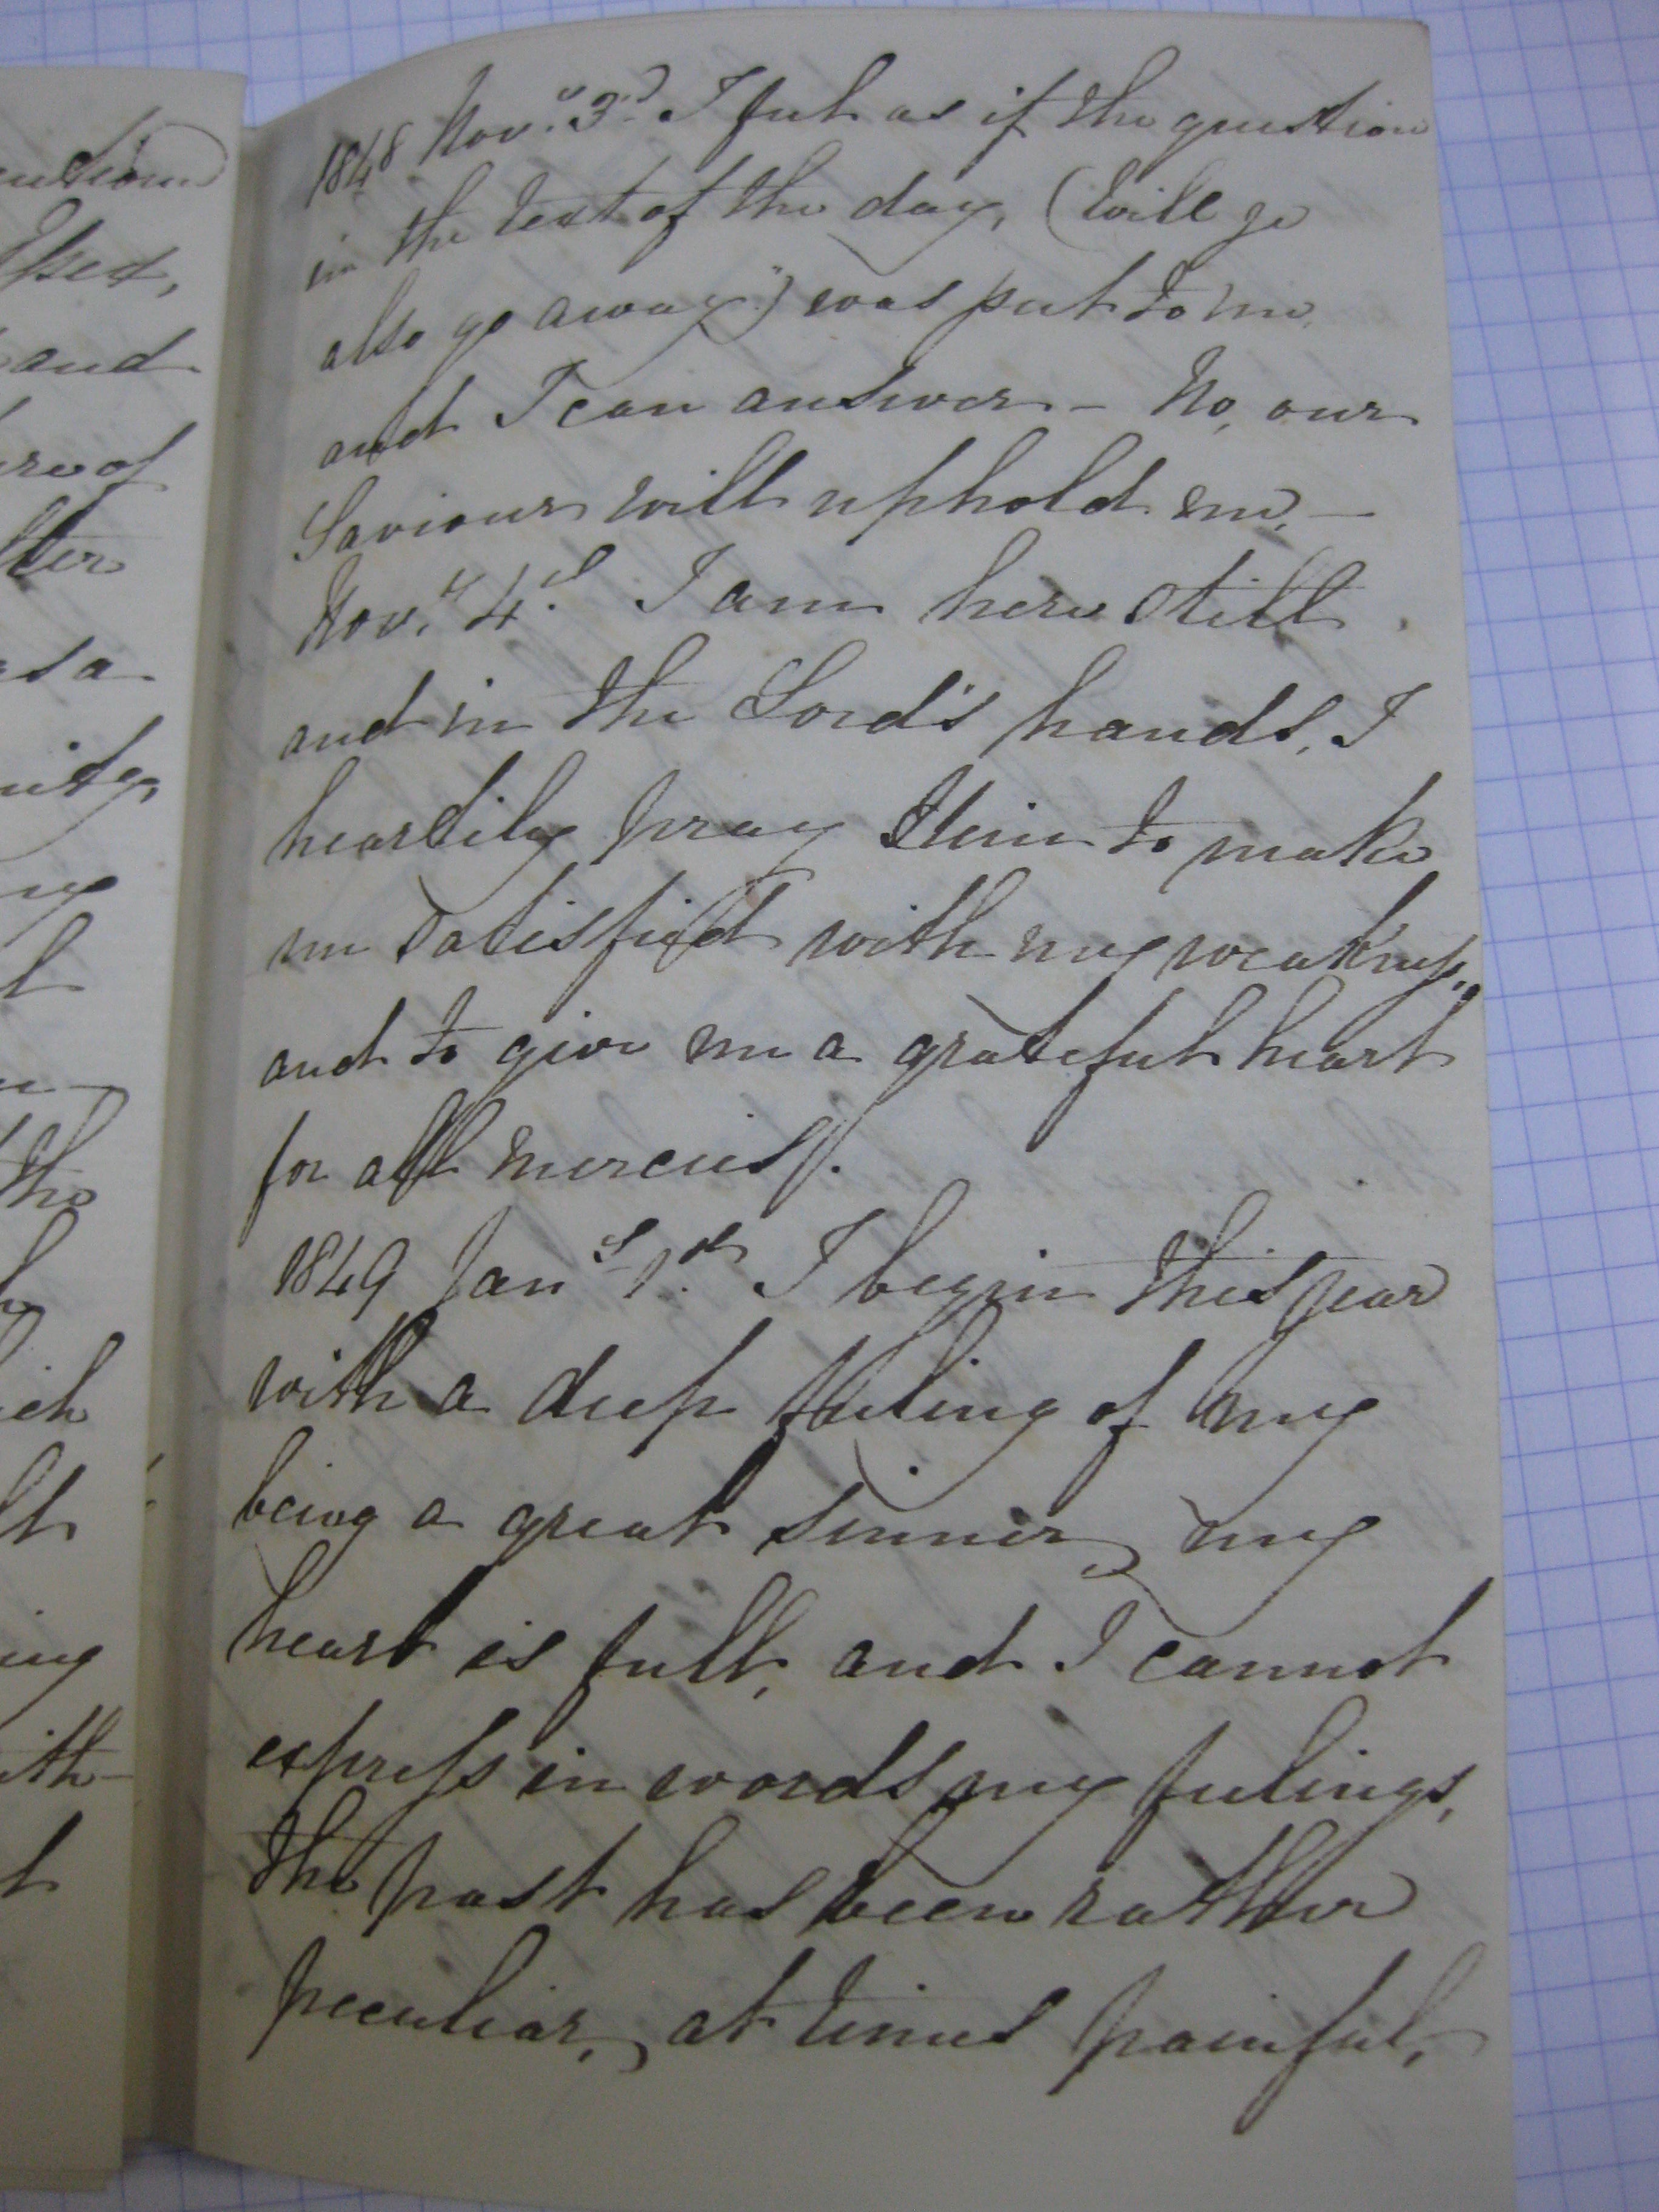 1848 Novr. 3d. I felt as if the question
in the text of the day, (Will ye
also go away") was put to me,
and I can answer – No, our
Saviour will uphold me, –
Novr. 4th. I am here still
and in the Lord's hands, I
heartily pray Him to make
me satisfied with my weakness,
and to give me a grateful heart
for all mercies.
1849 Jany 1st. I begin this year
with a deep feeling of my
being a great sinner, my
heart is full, and I cannot
express in words my feelings,
the past has been rather
peculiar, at times painful,
and
ter
s a
my
the
ich
ing
ith